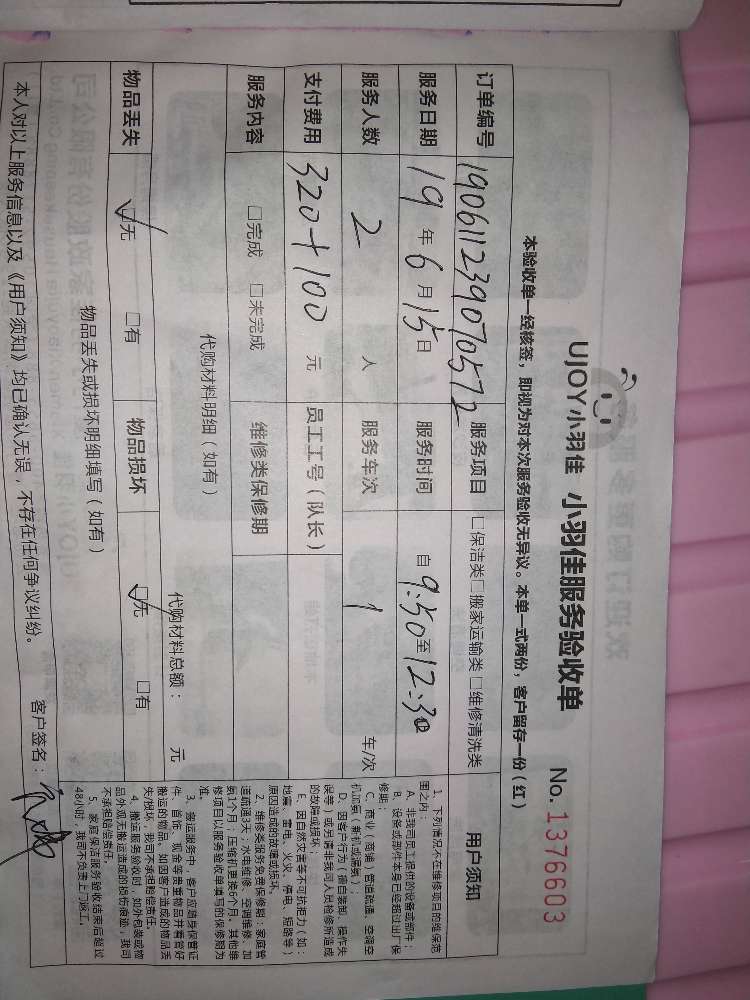 UJOY小羽佳 小羽佳服务验收单 No. 1376603
本验收单一经核签，即视为对本次服务验收无异议。本单一式两份，客户留存一份（红）
订单编号 190611239070572 服务项目 □保洁类□搬家运输类□维修清洗类
服务日期 19年6月15日 服务时间 自9:50至12:30
服务人数 2 人 服务车次 1 车/次
支付费用 320+100 元 员工工号（队长）
服务内容 □完成 □未完成 维修类保修期
代购材料明细（如有）
代购材料总额： 元
物品丢失 ☑无 □有 物品损坏 ☑无 □有
物品丢失或损坏明细填写（如有）
本人对以上服务信息以及《用户须知》均已确认无误，不存在任何争议纠纷。 客户签名：
用户须知
1、下列情况不在维修项目的维保范
围之内：
A、非我司员工提供的设备或部件；
B、设备或部件本身已经超过出厂保
修期；
C、商业（商铺）管道疏通、空调空
机加氟（新机加漏氟）；
D、因客户行为（擅自装卸、操作失
误等）或另请非我司人员检修所造成
的故障或损坏；
E、因自然灾害等不可抗拒力（如：
地震、雷电、火灾、停电、短路等）
原因造成的故障或损坏。
2、维修类服务免费保修期：家庭管
道疏通3天；水电维修、空调维修、加
氟1个月；压缩机更换6个月，其他维
修项目以服务验收单填写的保修期为
准。
3、搬运服务中，客户应随身保管证
件、首饰、现金等贵重物品并看管好
搬运的物品。如因客户造成的物品丢
失/损坏，我司不承担赔偿责任。
4、搬运服务验收时，如外包装或物
品外观无搬运造成的损伤痕迹，我司
不承担赔偿责任。
5、家庭保洁服务验收结束后超过
48小时，我司不负责上门返工。